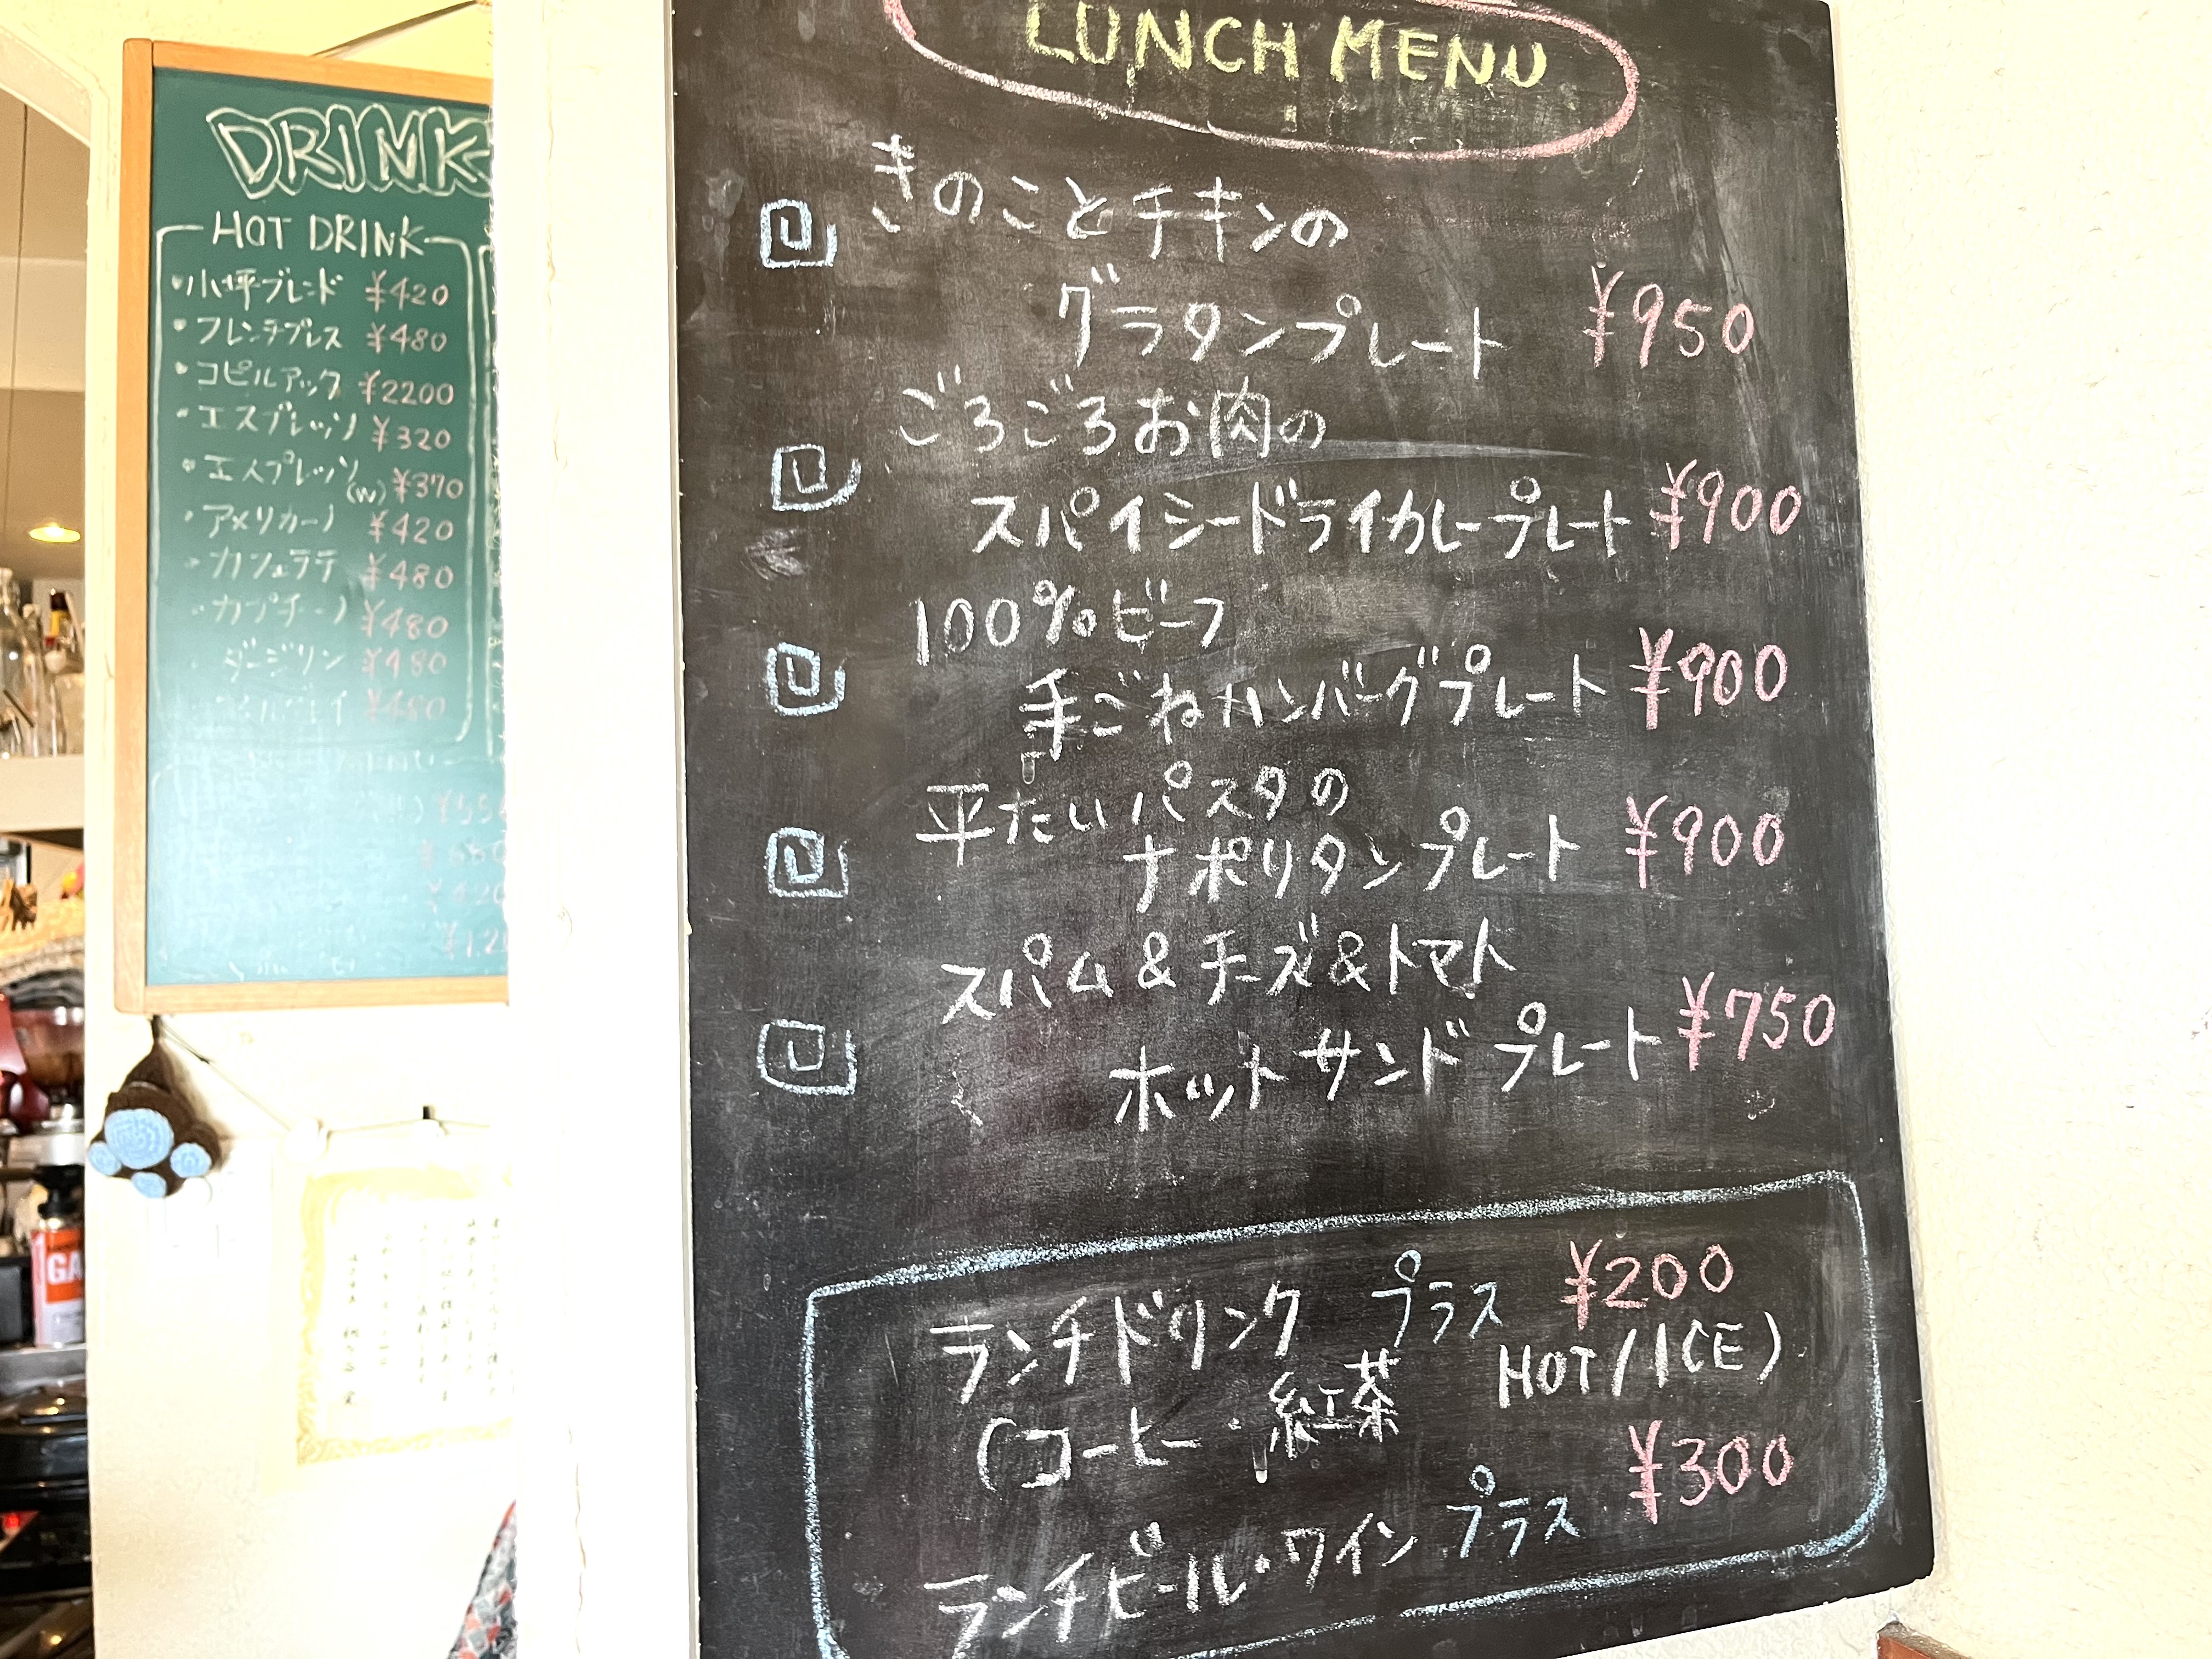 DRINK
HOT DRINK
・小坪ブレンド ¥420
・フレンチプレス ¥480
・コピルアック ¥2200
・エスプレッソ ¥320
・エスプレッソ(W) ¥370
・アメリカーノ ¥420
・カフェラテ ¥480
・カプチーノ ¥480
ダージリン ¥480
¥480
LUNCH MENU
きのことチキンの
グラタンプレート ¥950
ごろごろお肉の
スパイシードライカレープレート ¥900
100%ビーフ
手ごねハンバーグプレート ¥900
平たいパスタの
ナポリタンプレート ¥900
スパム&チーズ&トマト
ホットサンドプレート ¥750
ランチドリンク プラス ¥200
(コーヒー・紅茶 HOT/ICE)
ランチビール・ワイン プラス ¥300
GA